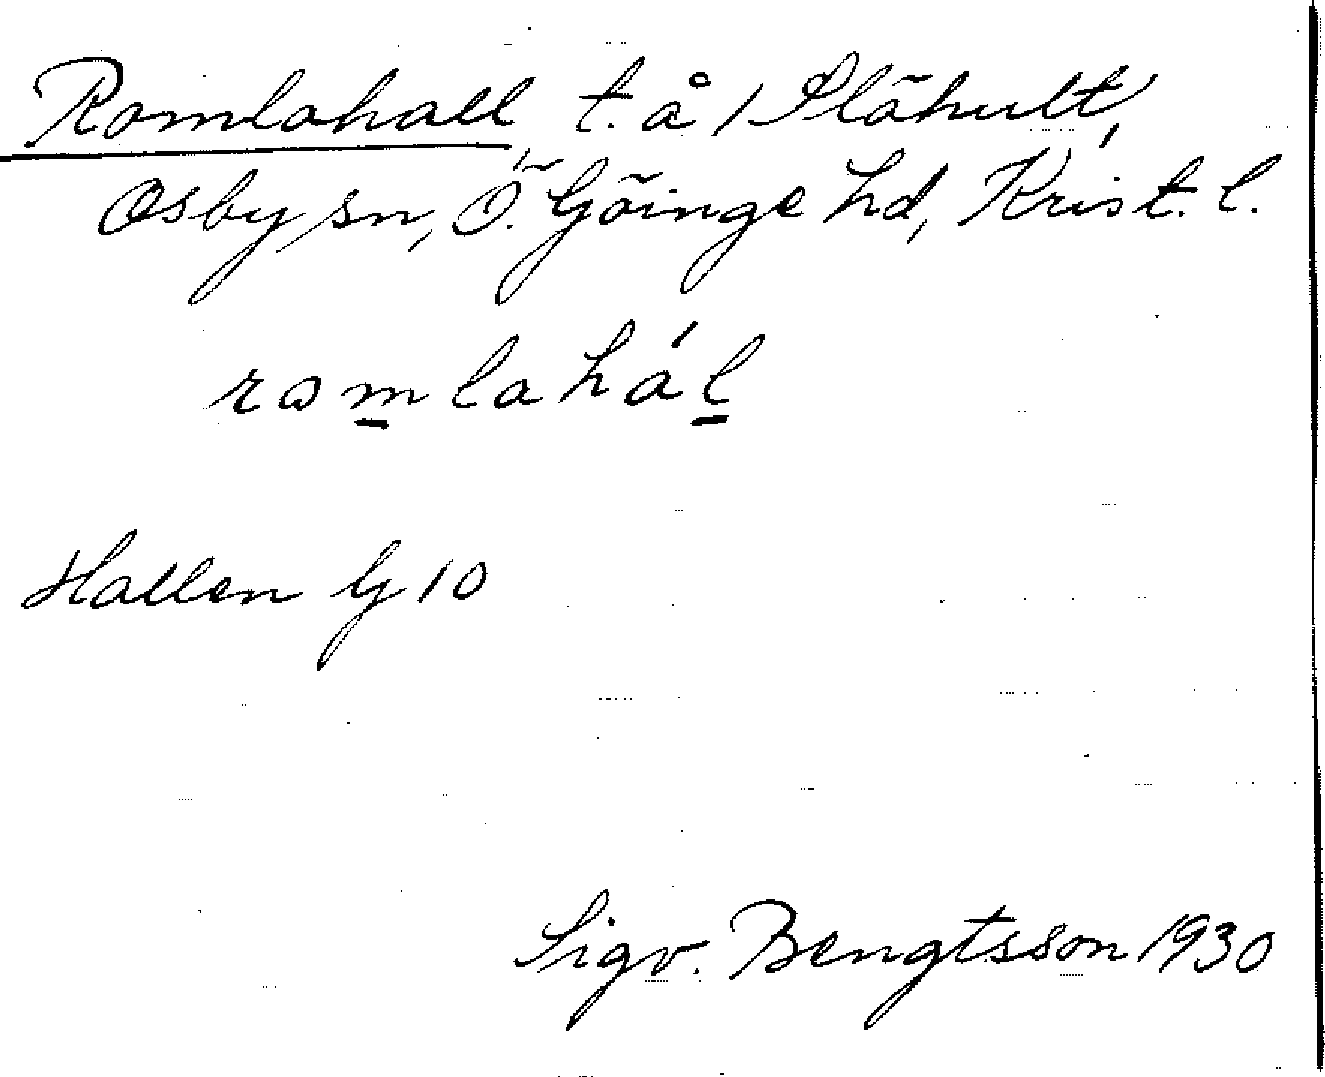 Romlahall t.å 1 Slähult,
Osby sn, Ö. Göinge hd, Krist. l.
romlahál
Hallen G 10
Sigv. Bengtsson 1930